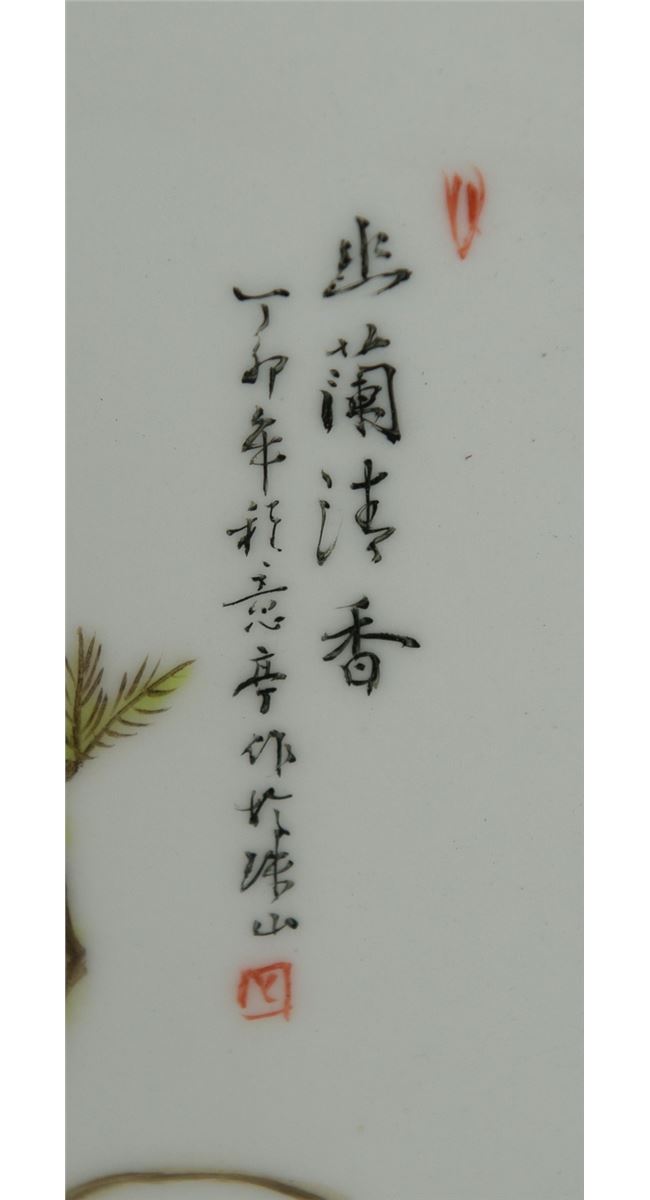 幽蘭清香
丁卯年程意亭作於珠山